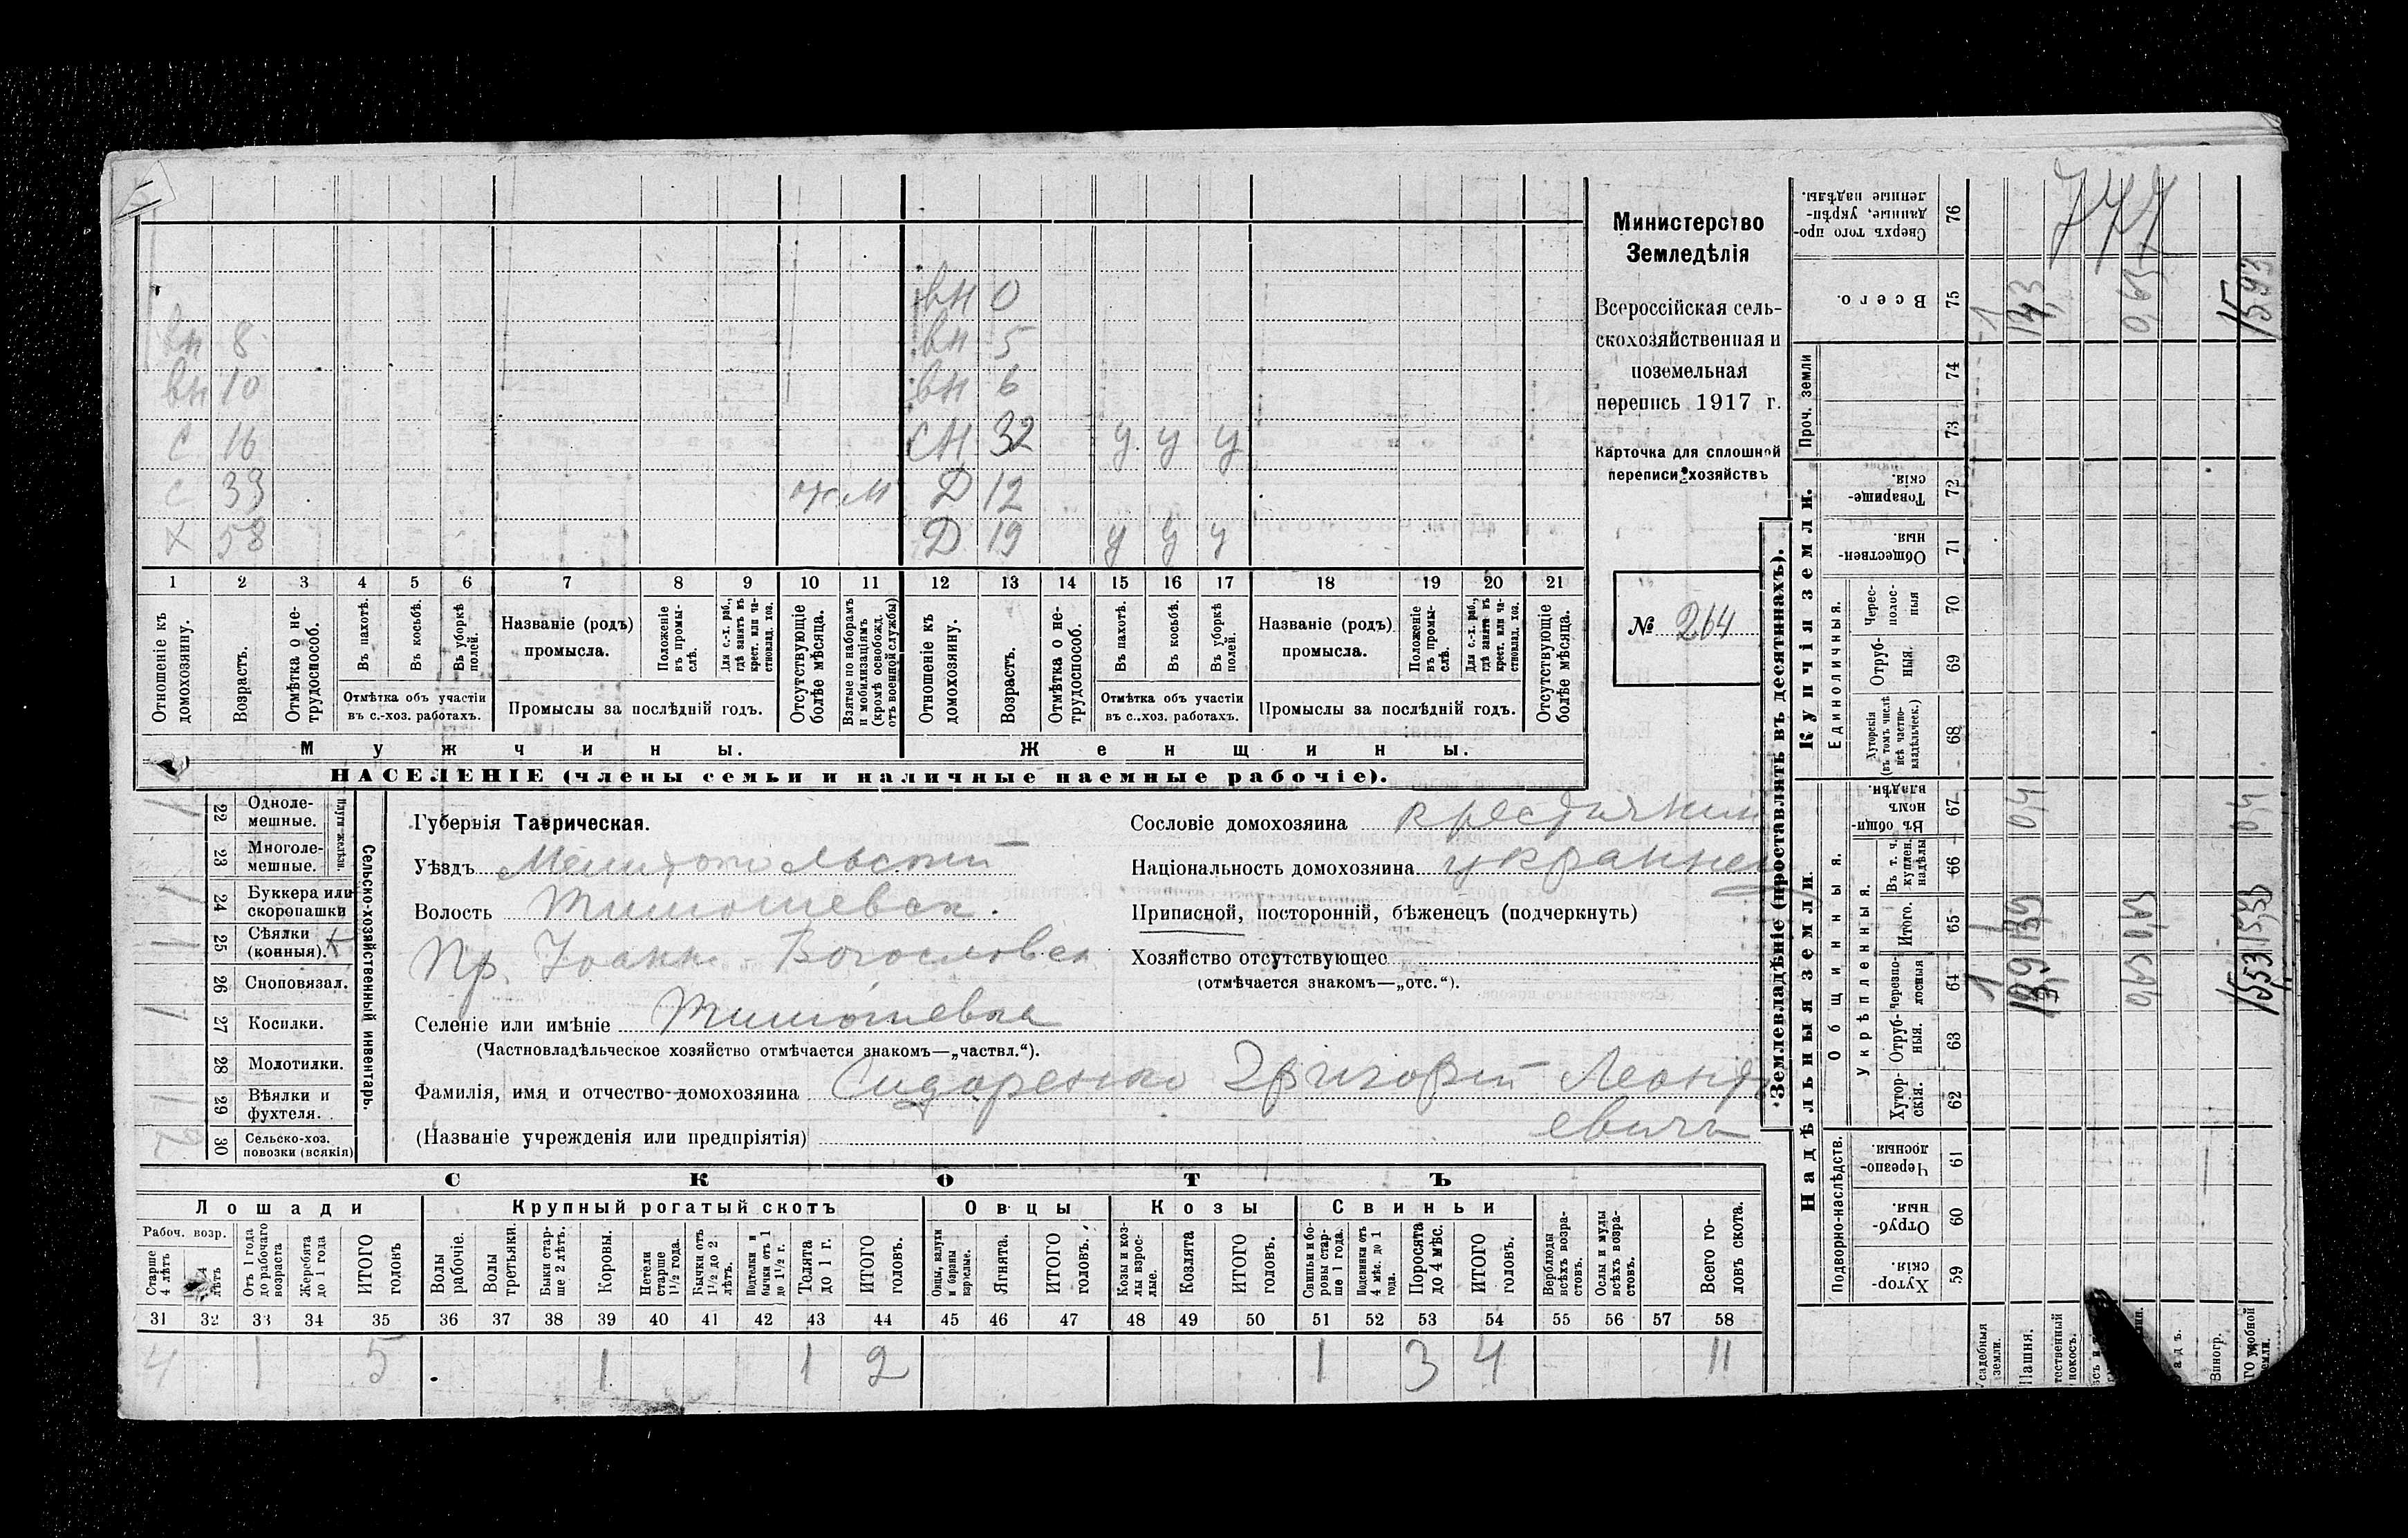 вн 0
вн 8 вн 5
вн 10 вн 6
с 16 сн 32 у у у
с 33 м Д 12
х 58 Д 19 у у у
1 2 3 4 5 6 7 8 9 10 11 12 13 14 15 16 17 18 19 20 21
Отношеніе къ домохозяину.
Возрастъ.
Отмѣтка о нетрудоспособ.
Въ пахотѣ.
Въ косьбѣ.
Въ уборкѣ полей.
Отмѣтка объ участіи
въ с.-хоз. работахъ.
Названіе (родъ)
промысла.
Положеніе въ промыслѣ.
Для с.-х. раб., гдѣ занятъ въ крест. или частновлад. хоз.
Промыслы за послѣдній годъ.
Отсутствующіе болѣе мѣсяца.
Взятые по наборамъ и мобилизаціямъ (кромѣ освобожд. отъ военной службы)
Отношеніе къ домохозяину.
Возрастъ.
Отмѣтка о нетрудоспособ.
Въ пахотѣ.
Въ косьбѣ.
Въ уборкѣ полей.
Отмѣтка объ участіи
въ с.-хоз. работахъ.
Названіе (родъ)
промысла.
Положеніе въ промыслѣ.
Для с.-х. раб., гдѣ занята въ крест. или частновлад. хоз.
Промыслы за послѣдній годъ.
Отсутствующіе болѣе мѣсяца.
Мужчины. Женщины.
НАСЕЛЕНІЕ (члены семьи и наличные наемные рабочіе).
Министерство
Земледѣлія
Всероссійская сель-
скохозяйственная и
поземельная
перепись 1917 г.
Карточка для сплошной
переписи хозяйствъ
№ 264
22 Одноле-
мешные.
23 Многоле-
мешные.
Плуги желѣзн.
24 Буккера или
скоропашки
25 Сѣялки
(конныя).
26 Сноповязал.
27 Косилки.
28 Молотилки.
29 Вѣялки и
фухтеля.
30 Сельско-хоз.
повозки (всякія)
2
Сельско-хозяйственный инвентарь.
Губернія Таврическая.
Уѣздъ Мелитопольскій
Волость Тимошевск.
Пр. Іоанно-Богословск
Селеніе или имѣніе Тимошевка
(Частновладѣльческое хозяйство отмѣчается знакомъ—„частвл.“).
Фамилія, имя и отчество домохозяина Сидоренко Григорій Леонть
евичъ
(Названіе учрежденія или предпріятія)
Сословіе домохозяина крестьянин
Національность домохозяина украинец
Приписной, посторонній, бѣженецъ (подчеркнуть)
Хозяйство отсутствующее
(отмѣчается знакомъ—„отс.“).
СКОТЪ
Лошади Крупный рогатый скотъ Овцы Козы Свиньи
Рабоч. возр.
Старше 4 лѣтъ
Отъ 1 года до рабочаго возраста
Жеребята до 1 года
ИТОГО головъ
Волы рабочіе.
Волы третьяки.
Быки старше 2 лѣтъ.
Коровы.
Нетели старше 1½ года.
Бычки отъ 1½ до 2 лѣтъ.
Подтелки и бычки отъ 1 до 1½ г.
Телята до 1 г.
ИТОГО головъ.
Овцы, валухи и бараны взрослые.
Ягнята.
ИТОГО головъ.
Козы и козлы взрослые.
Козлята
ИТОГО головъ.
Свиньи и боровы старше 1 года.
Подсвинки отъ 4 мѣс. до 1 года.
Поросята до 4 мѣс.
ИТОГО головъ.
Верблюды всѣхъ возрастовъ.
Ослы и мулы всѣхъ возрастовъ.
Всего головъ скота.
31 32 33 34 35 36 37 38 39 40 41 42 43 44 45 46 47 48 49 50 51 52 53 54 55 56 57 58
4 1 5 1 1 2 1 3 4 11
Землевладѣніе (проставлять въ десятинахъ).
Купчія земли.
Надѣльныя земли.
Сверхъ того проданные, укрѣпленные надѣлы. 76
Всего. 75
Проч. земли 74
73
Товарищескія. 72
Общественныя. 71
Единоличныя.
Чересполосныя 70
Отрубныя. 69
Хуторскія (въ томъ числѣ всѣ частновладѣльческ.) 68
Общинныя.
Въ общинномъ владѣн. 67
Укрѣпленныя.
Въ т. ч. куплен. надѣлы 66
Итого. 65
Черезполосныя 64
Отрубныя. 63
Хуторскія. 62
Подворно-наслѣдств.
Черезполосныя. 61
Отрубныя. 60
Хуторскія. 59
Усадебныя земли.
Пашня.
Виногр.
0,4
0,4